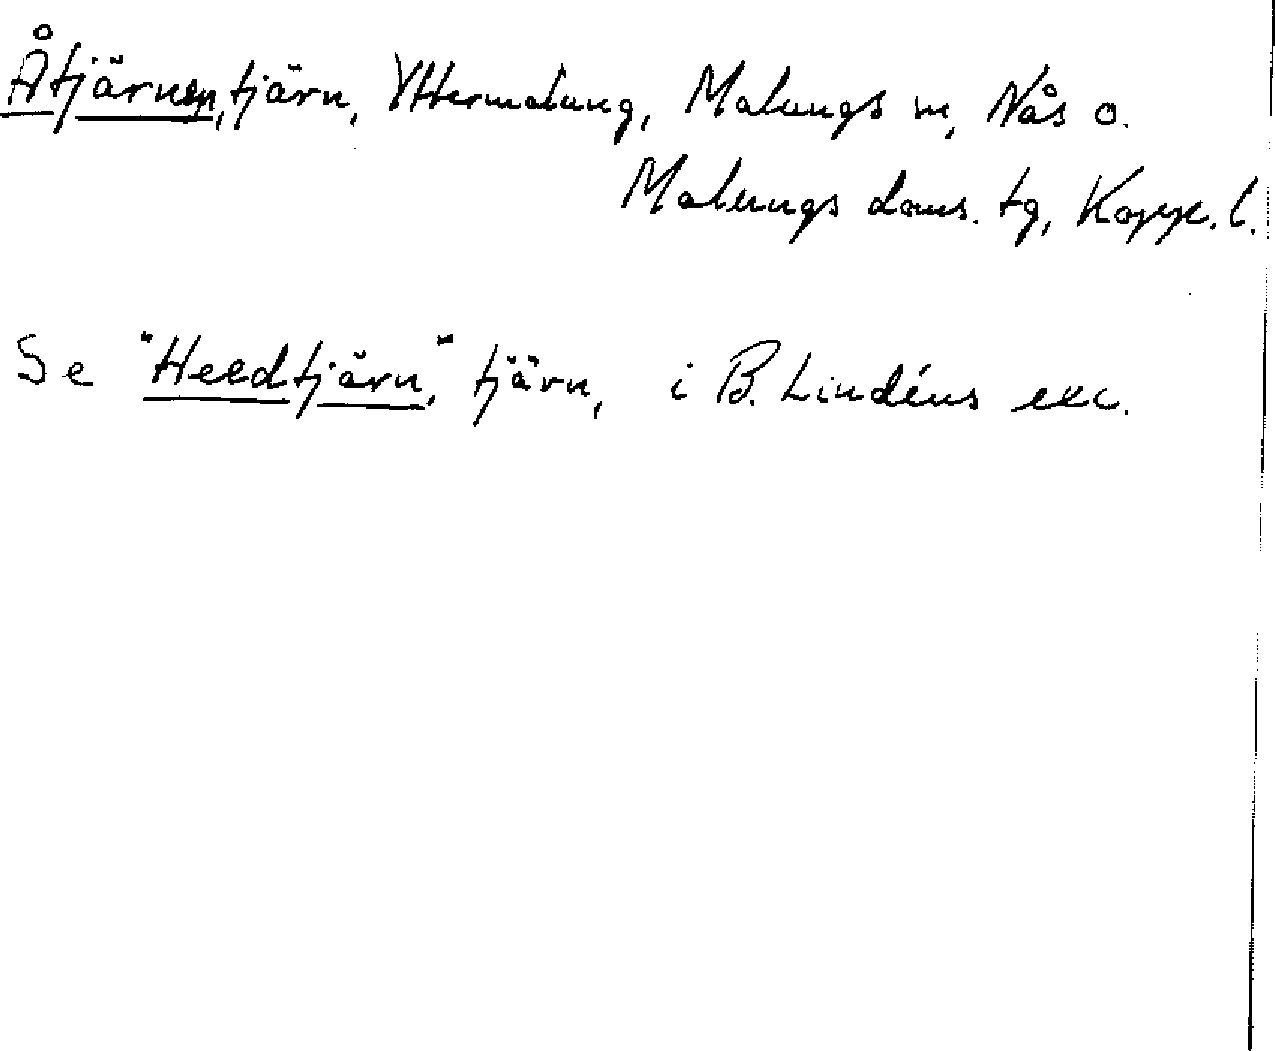 Åtjärnen, tjärn, Yttermalung, Malungs m, Nås o.
Malungs doms. tg, Kopp. l.
Se "Heedtjärn," tjärn, i B. Lindéns exc.